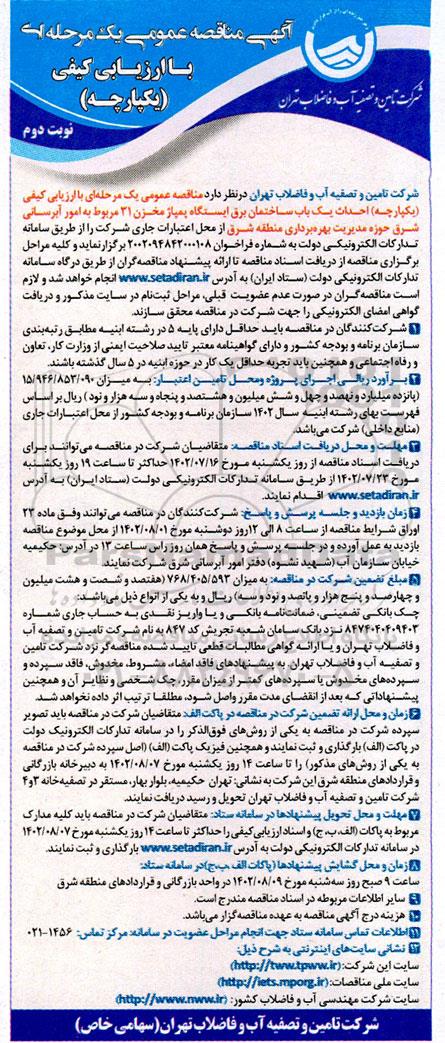 آگهی مناقصه عمومی یک مرحله‌ای
با ارزیابی کیفی
(یکپارچه)
نوبت دوم
شرکت تامین و تصفیه آب و فاضلاب تهران
شرکت تامین و تصفیه آب و فاضلاب تهران درنظر دارد مناقصه عمومی یک مرحله‌ای با ارزیابی کیفی
(یکپارچه) احداث یک باب ساختمان برق ایستگاه پمپاژ مخزن ۳۱ مربوط به امور آبرسانی
شرق حوزه مدیریت بهره‌برداری منطقه شرق از محل اعتبارات جاری شرکت را از طریق سامانه
تدارکات الکترونیکی دولت به شماره فراخوان ۲۰۰۲۰۹۴۸۴۲۰۰۰۱۰۸ برگزار نماید و کلیه مراحل
برگزاری مناقصه از دریافت اسناد مناقصه تا ارائه پیشنهاد مناقصه‌گران از طریق درگاه سامانه
تدارکات الکترونیکی دولت (ستاد ایران) به آدرس www.setadiran.ir انجام خواهد شد و لازم
است مناقصه‌گران در صورت عدم عضویت قبلی، مراحل ثبت‌نام در سایت مذکور و دریافت
گواهی امضای الکترونیکی را جهت شرکت در مناقصه محقق سازند.
۱ شرکت‌کنندگان در مناقصه باید حداقل دارای پایه ۵ در رشته ابنیه مطابق رتبه‌بندی
سازمان برنامه و بودجه کشور و دارای گواهینامه معتبر تایید صلاحیت ایمنی از وزارت کار، تعاون
و رفاه اجتماعی و همچنین باید تجربه حداقل یک کار در حوزه ابنیه در ۵ سال گذشته باشند.
۲ برآورد ریالی اجرای پروژه ومحل تامین اعتبار: به میزان ۱۵/۹۴۶/۸۵۳/۰۹۰
(پانزده میلیارد و نهصد و چهل و شش میلیون و هشتصد و پنجاه و سه هزار و نود) ریال بر اساس
فهرست بهای رشته ابنیه سال ۱۴۰۲ سازمان برنامه و بودجه کشور از محل اعتبارات جاری
(منابع داخلی) شرکت می‌باشد.
۳ مهلت و محل دریافت اسناد مناقصه: متقاضیان شرکت در مناقصه می‌توانند برای
دریافت اسناد مناقصه از روز یکشنبه مورخ ۱۴۰۲/۰۷/۱۶ حداکثر تا ساعت ۱۹ روز یکشنبه
مورخ ۱۴۰۲/۰۷/۲۳ از طریق سامانه تدارکات الکترونیکی دولت (ستاد ایران) به آدرس
www.setadiran.ir اقدام نمایند.
۴ زمان بازدید و جلسه پرسش و پاسخ: شرکت‌کنندگان در مناقصه می‌توانند وفق ماده ۲۳
اوراق شرایط مناقصه از ساعت ۸ الی ۱۲روز دوشنبه مورخ ۱۴۰۲/۰۸/۰۱ از محل موضوع مناقصه
بازدید به عمل آورده و در جلسه پرسش و پاسخ همان روز راس ساعت ۱۳ در آدرس: حکیمیه
خیابان سازمان آب (شهید نشوه) دفتر امور آبرسانی شرق شرکت نمایند.
۵ مبلغ تضمین شرکت در مناقصه: به میزان ۷۶۸/۴۰۵/۵۹۳ (هفتصد و شصت و هشت میلیون
و چهارصد و پنج هزار و پانصد و نود و سه) ریال و به یکی از انواع ذیل می‌باشد:
چک بانکی تضمینی، ضمانت‌نامه بانکی و یا واریز نقدی به حساب جاری شماره
۸۴۷۴۰۴۰۹۴۰۳ نزد بانک سامان شعبه تجریش کد ۸۴۷به نام شرکت تامین و تصفیه آب
و فاضلاب تهران و یا ارائه گواهی مطالبات قطعی تایید شده مناقصه‌گر نزد شرکت تامین
و تصفیه آب و فاضلاب تهران به پیشنهادهای فاقد امضاء، مشروط، مخدوش، فاقد سپرده و
سپرده‌های مخدوش یا سپرده‌های کمتر از میزان مقرر، چک شخصی و نظایر آن و همچنین
پیشنهاداتی که بعد از انقضای مدت مقرر واصل شود، مطلقا ترتیب اثر داده نخواهد شد.
۶ زمان و محل ارائه تضمین شرکت در مناقصه در پاکت الف: متقاضیان شرکت در مناقصه باید تصویر
سپرده شرکت در مناقصه به یکی از روش‌های فوق‌الذکر را در سامانه تدارکات الکترونیک دولت
در پاکت (الف) بارگذاری و ثبت نمایند و همچنین فیزیک پاکت (الف) (اصل سپرده شرکت در مناقصه
به یکی از روش‌های مذکور) را تا ساعت ۱۴ روز یکشنبه مورخ ۱۴۰۲/۰۸/۰۷ به دبیرخانه بازرگانی
و قراردادهای منطقه شرق این شرکت به نشانی: تهران حکیمیه، بلوار بهار، مستقر در تصفیه‌خانه ۳و۴
شرکت تامین و تصفیه آب و فاضلاب تهران تحویل و رسید دریافت نمایند.
۷ مهلت و محل تحویل پیشنهادها در سامانه ستاد: متقاضیان شرکت در مناقصه باید کلیه مدارک
مربوط به پاکات (الف، ب، ج) و اسناد ارزیابی کیفی را حداکثر تا ساعت ۱۴ روز یکشنبه مورخ ۱۴۰۲/۰۸/۰۷
در سامانه تدارکات الکترونیکی دولت به آدرس www.setadiran.ir بارگذاری و ثبت نمایند.
۸ زمان و محل گشایش پیشنهادها (پاکات الف.ب.ج)در سامانه ستاد:
ساعت ۹ صبح روز سه‌شنبه مورخ ۱۴۰۲/۰۸/۰۹ در واحد بازرگانی و قراردادهای منطقه شرق
۹ سایر اطلاعات مربوطه در اسناد مناقصه مندرج است.
۱۰ هزینه درج آگهی مناقصه به عهده مناقصه‌گزار می‌باشد.
۱۱ اطلاعات تماس سامانه ستاد جهت انجام مراحل عضویت در سامانه: مرکز تماس: ۱۴۵۶-۰۲۱
۱۲ نشانی سایت‌های اینترنتی به شرح ذیل:
سایت این شرکت: (http://tww.tpww.ir)
سایت ملی مناقصات: (http://iets.mporg.ir)
سایت شرکت مهندسی آب و فاضلاب کشور: (http://www.nww.ir)
شرکت تامین و تصفیه آب و فاضلاب تهران (سهامی خاص)